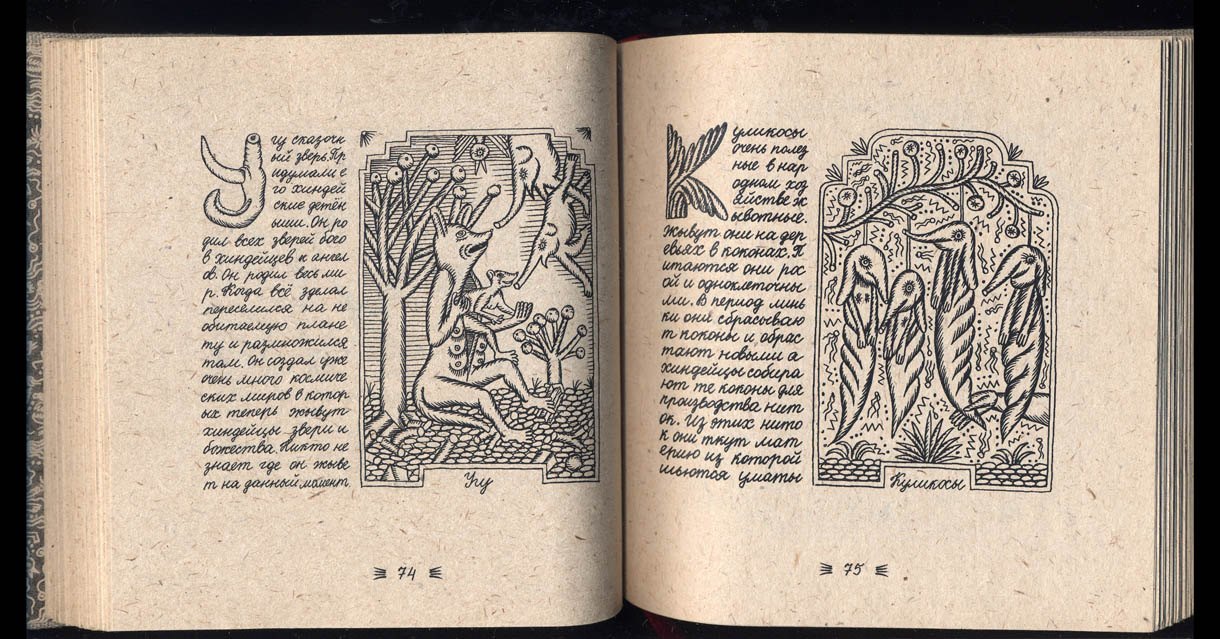 Угу сказочн
ый зверь. Пр
идумали е
го хиндей
ские детён
ыши. Он ро
дил всех зверей бого
в хиндейцев и ангел
ов. Он родил весь ми
р. Когда всё зделал
переселился на не
обитаемую плане
ту и размножился
там. Он создал уже
очень много космиче
ских миров в котор
ых теперь живут
хиндейцы звери и
божества. Никто не
знает где он живе
т на данный момент
Угу
74
Куликосы
очень полез
ные в нар
одном хоз
яйстве ж
ывотные.
Живут они на дер
евьях в коконах. П
итаются они рос
ой и одноклеточны
ми. В период линь
ки они сбрасываю
т коконы и обрас
тают новыми а
хиндейцы собира
ют те коконы для
производства нит
ок. Из этих нито
к они ткут мат
ерию из которой
шьются уматы
Куликосы
75